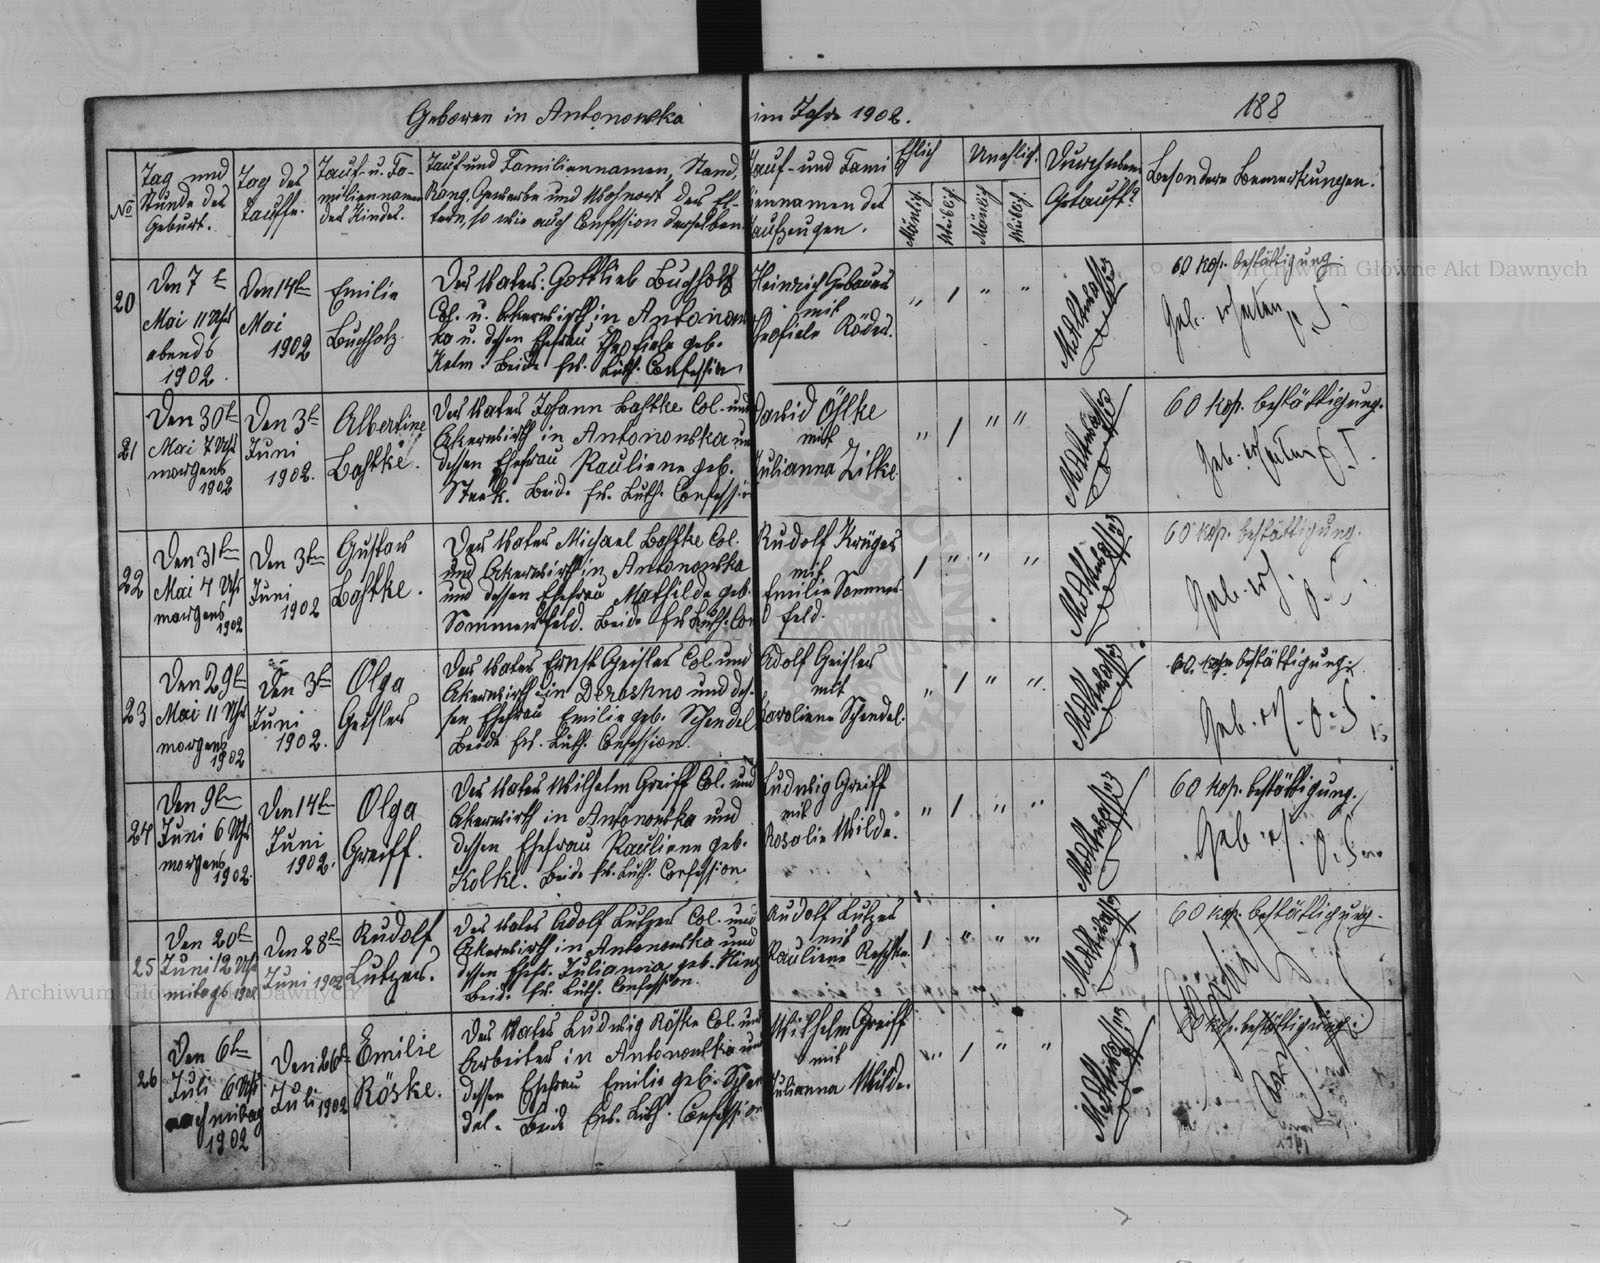 Geboren in Antonowka im Jahre 1902.
188
No
Tag und
Stunde der
Geburt.
Tag der
Tauffe.
Tauf- u. Fa-
miliennamen
des Kindes.
Tauf und Familiennamen, Stand,
Rang, Gewerbe und Wohnort der El-
tern, so wie auch Confession derselben
Tauf- und Fami
liennamen der
Taufzeugen.
Ehlich
Mänlich
Weiblich
Unehlich.
Mänlich
Weiblich.
Durch wem
Getauft?
Besondere Bemerkungen.
20
Den 7t
Mai 11 Uhr
abends
1902.
Den 14ten
Mai
1902
Emilie
Buchholz.
Der Vater: Gottlieb Buchholz
Col. u. Akerwirth in Antonow
ka u. dessen Ehefrau Theofiele geb.
Kelm. Beide Ev. Luth. Confession
Heinrich Gebauer
mit
Theofiele Röder.
" 1 " "
60 kop. bestättigung.
Geb. erhalten
21
Den 30t
Mai 7 Uhr
morgens
1902
Den 3t
Juni
1902.
Albertine
Bastke.
Der Vater Johann Bastke Col. und
Akerwirth in Antonowka un
dessen Ehefrau Pauliene geb.
Stark. Beide Ev. Luth. Confessio
David Öhlke
mit
Julianna Zilke
" 1 " "
60 kop. bestättigung.
Geb. erhalten
22
Den 31ten
Mai 4 Uhr
morgens
1902
Den 3ten
Juni
1902
Gustav
Bastke.
Der Vater Michael Bastke Col.
und Akerwirth in Antonowka
und dessen Ehefrau Mathilde geb.
Sommerfeld. Beide Ev. Luth. Con
Rudolf Krüger
mit
Emilie Sommer
feld.
1 " " "
60 kop. bestättigung.
Geb. erh.
23
Den 29ten
Mai 11 Uhr
morgens
1902
Den 3ten
Juni
1902.
Olga
Geisler
Der Vater Ernst Geisler Col und
Akerwirth in Deraschno und des-
sen Ehefrau Emilie geb. Schendel
Beide Ev. Luth. Confession.
Adolf Geisler
mit
Karoliene Schendel.
" 1 " "
60. kop. bestättigung.
Geb. erh.
24
Den 9ten
Juni 6 Uhr
morgens
1902.
Den 14ten
Juni
1902.
Olga
Greiff.
Der Vater Wilhelm Greiff Col. und
Akerwirth in Antonowka und
dessen Ehefrau Pauliene geb.
Kolke. Beide Ev. Luth. Confession
Ludwig Greiff
mit
Rosalie Wilde.
" 1 " "
60 kop. bestättigung.
Geb. erh.
25
Den 20t
Juni 12 Uhr
mitags 1902
Den 28t
Juni 1902
Rudolf
Lutzer.
Der Vater Adolf Lutzer Col. und
Akerwirth in Antonowka und
dessen Ehefr. Julianna geb. Hinz
Beide Ev. Luth. Confession.
Rudolf Lutzer
mit
Pauliene Reschke.
1 " " "
60 kop. bestättigung.
26
Den 6ten
Juli 6 Uhr
nachmitag
1902
Den 26t
Juli 1902
Emilie
Röske.
Der Vater Ludwig Röske Col. und
Arbeiter in Antonowka und
dessen Ehefrau Emilie geb. Schen
del. Beide Ev. Luth. Confession
Wilhelm Greiff
mit
Julianna Wilde.
" 1 " "
60 kop. bestättigung.
Archiwum Główne Akt Dawnych
Archiwum Główne Akt Dawnych